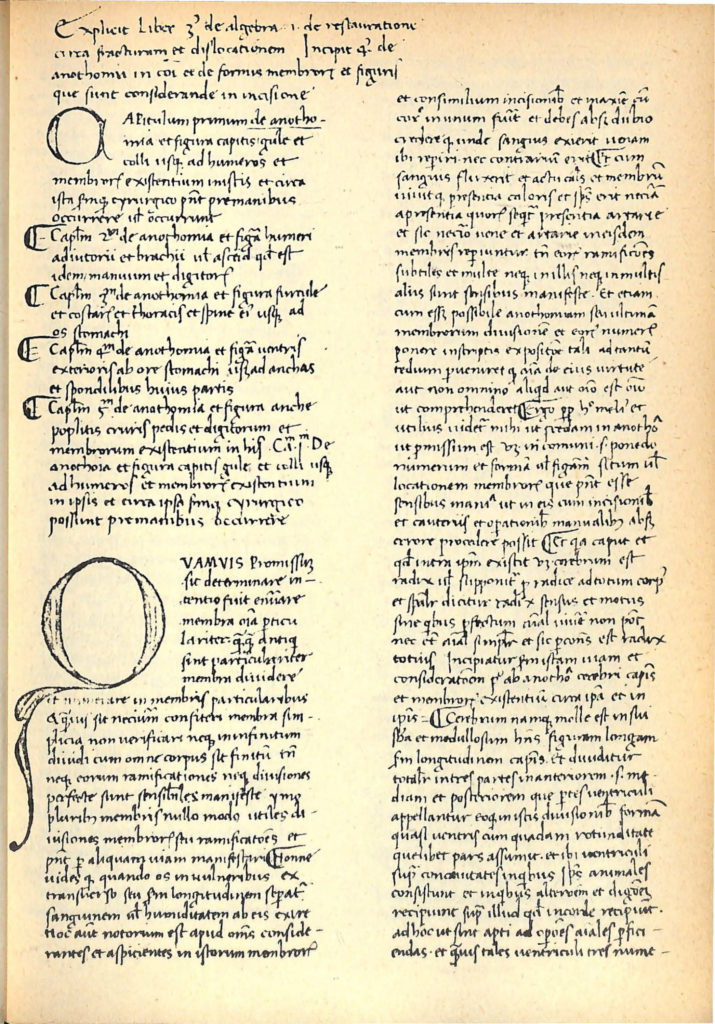 Explicit Liber 3⁹ de algebra .i. de restauratione
circa fracturam et dislocationem Incipit 4⁹ de
anothomia in coī et de formis membrorꝝ et figuris
que sunt considerande in incisione
CAPitulum primum de anotho-
mia et figura capitis gule et
colli usqꝫ ad humeros et
membrorꝝ existentium in istis et circa
ista sinqꝫ cyrurgico pn̄t premanibus
occurrere ul̄ occurrunt
Capl̄m 2m de anothomia et figa humeri
adiutorii et brachii ul̄ asceid qd̄ est
idem manuum et digitorꝝ
Capl̄m 3m de anothomia et figura furcule
et costarꝝ et thoracis et spine eiꝰ usqꝫ ad
os stomachi
Capl̄m 4m de anothomia et figa uentris
exterioris ab ore stomachi usqꝫ ad anchas
et spondilibus huius partis
Capl̄m 5m de anothomia et figura anche
poplitis cruris pedis et digitorum et
membrorum existentium in hiis . Cam Im De
anothoia et figura capitis gule et colli usqꝫ
ad humeros et membrorꝝ existentium
in ipsis et circa ipsa sinqꝫ cyrurgico
possunt premanibus occurrere
QUAMVIS Promissum
sit determinare in-
tentio fuit enūare
membra oīa pticu
lariter qꝫqꝫ antiqi
sint particulariter
membra diuidere
et numerare in membris particularibus
Aquiꝰ sit necium̄ confiteri membra sim-
plicia non uerificare neqꝫ in infinitum
diuidi cum omne corpus sit finitum tn̄
neqꝫ eorum ramificationes neqꝫ diuisiones
perfecte sunt sensibiles manifeste ymo
pluribꝫ membris nullo modo utiles di-
uisiones membrorꝝ seu ramificatoēs et
pn̄t p̄ aliquam uiam manifestari Nonne
uides qꝫ quando os in uulneribus ex
transuerso seu sm̄ longitudinem sepat
sanguinem ul̄ humiditatem ab eis exire
Hoc aut̄ notorum est apud oms̄ conside-
rantes et aspicientes in istorum membrorꝝ
et consimilium incisionibꝫ et maxie cū
corꝰ in unum fuit et debes absqꝫ dubio
credere qꝫ unde sanguis exierit uenam
ibi repiri nec contrarium erit Et cum
sanguis fluxerit et actu calꝰ et membrū
uiuit qꝫ presentia caloris et sps̄ erit necia
a presentia quorꝝ seqt̄ presentia artarie
et sic necio uene et artarie in eisdem
membris repiuntur tn̄ eorꝝ ramificatoēs
subtiles et multe neqꝫ in illis neqꝫ in multis
aliis sunt sensibus manifeste . Et etiam
cum esst̄ possibile anothomiam seu ultimam
membrorum diuisionem et eorꝝ numerꝝ
ponere in scriptis expositor tali ad tantū
tedium perueniret qꝫ aīa de eius uirtute
aut non omnino aliqd̄ aut oīo est oīu
ut comprehenderet Ergo pp̄ hoꝰ meliꝰ et
utilius uidet mihi ut procedam in anothoa
ut promissum est vꝫ in comuni .s. ponendo
numerum et formā ul̄ figam̄ situm ul̄
locationem membrorꝝ que pn̄t esse
sensibus maniᵃ ut in eis cum incisionibꝫ
et cauteriis et opationibꝫ manualibꝫ absqꝫ
errore procedere possit Et qa caput et
qd̄ intra ipm̄ existit vꝫ cerebrum est
radix ul̄ supponit p̄ radice ad totum corpꝰ
et spal̄r dicitur radix sensus et motus
sine qbus pfectum aīal uiuere non pōt
nec ēē aīal simplr̄ et sic p̄ cons̄ est radix
totius Incipiatur p̄m istam uiam et
consideratoēm pꝰ ab anothoᵃ cerebri capis̄
et membrorꝝ existentiū circa ipā et in
ipīs – Cerebrum namqꝫ molle est in sui
sbā et medullosum hn̄s figuram longam
sm̄ longitudinem capis̄ . Et diuiditur
totalr̄ in tres partes in anteriorem .s. me
diam et posteriorem que ptes uentriculi
appellantur eo qꝫ in istis diuisionibꝫ formā
quasi uentris cum quadam rotunditate
quelibet pars assumit . et ibi uentriculi
supᵗ concauitates in qbus sps̄ animales
consistunt et in qbus alteroēm et digoēm
recipiunt supᵃ illud qd̄ in corde recipiunt .
ad hoc ut sint apti ad opoēs aīales pfici-
endas . et quis tales uentriculi tres nume-